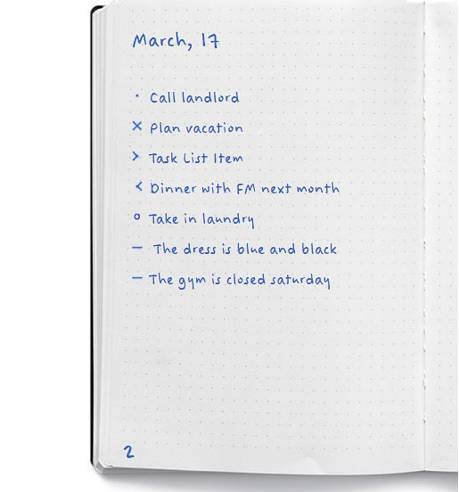 March, 17
· Call landlord
× Plan vacation
> Task List Item
< Dinner with FM next month
o Take in laundry
— The dress is blue and black
— The gym is closed saturday
2